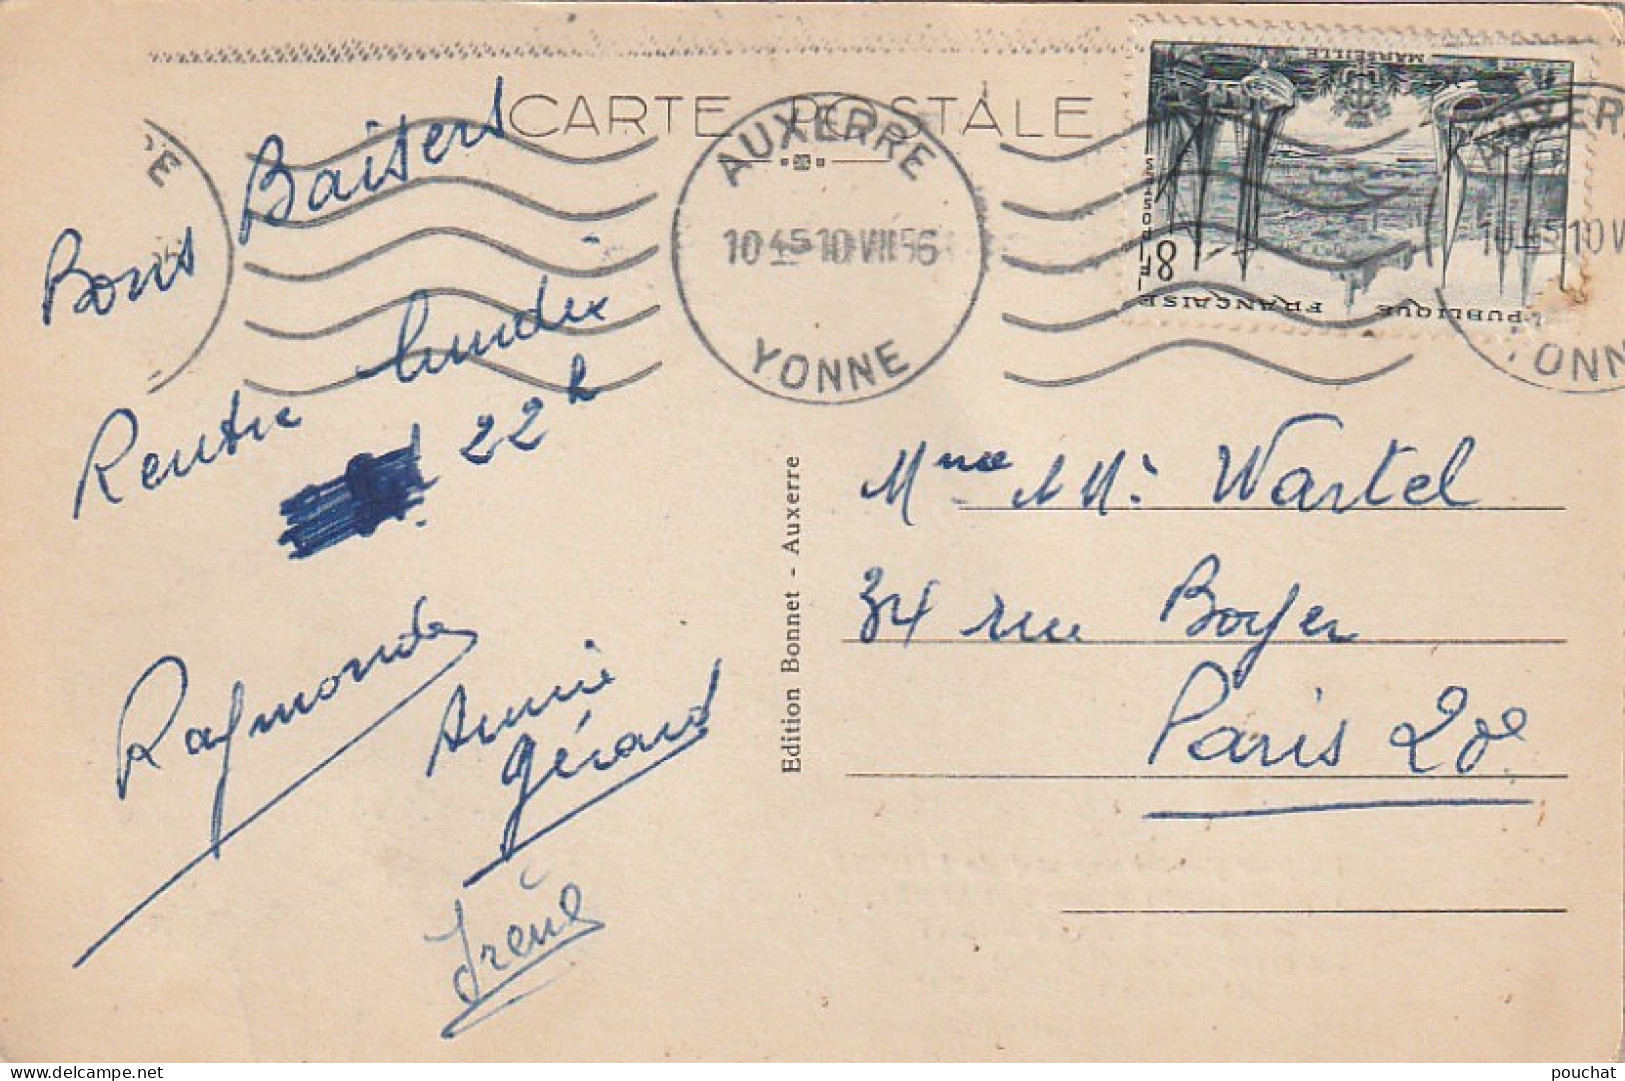 CARTE POSTALE
AUXERRE
10 45 10 VII 56
YONNE
MARSEILLE
8F
RÉPUBLIQUE FRANÇAISE
Bons Baisers
Rentre lundi
22 h
Raymonde
Annie
Gérard
Irène
Edition Bonnet - Auxerre
Mme Wartel
34 rue Boyer
Paris 20e
www.delcampe.net
pouchat